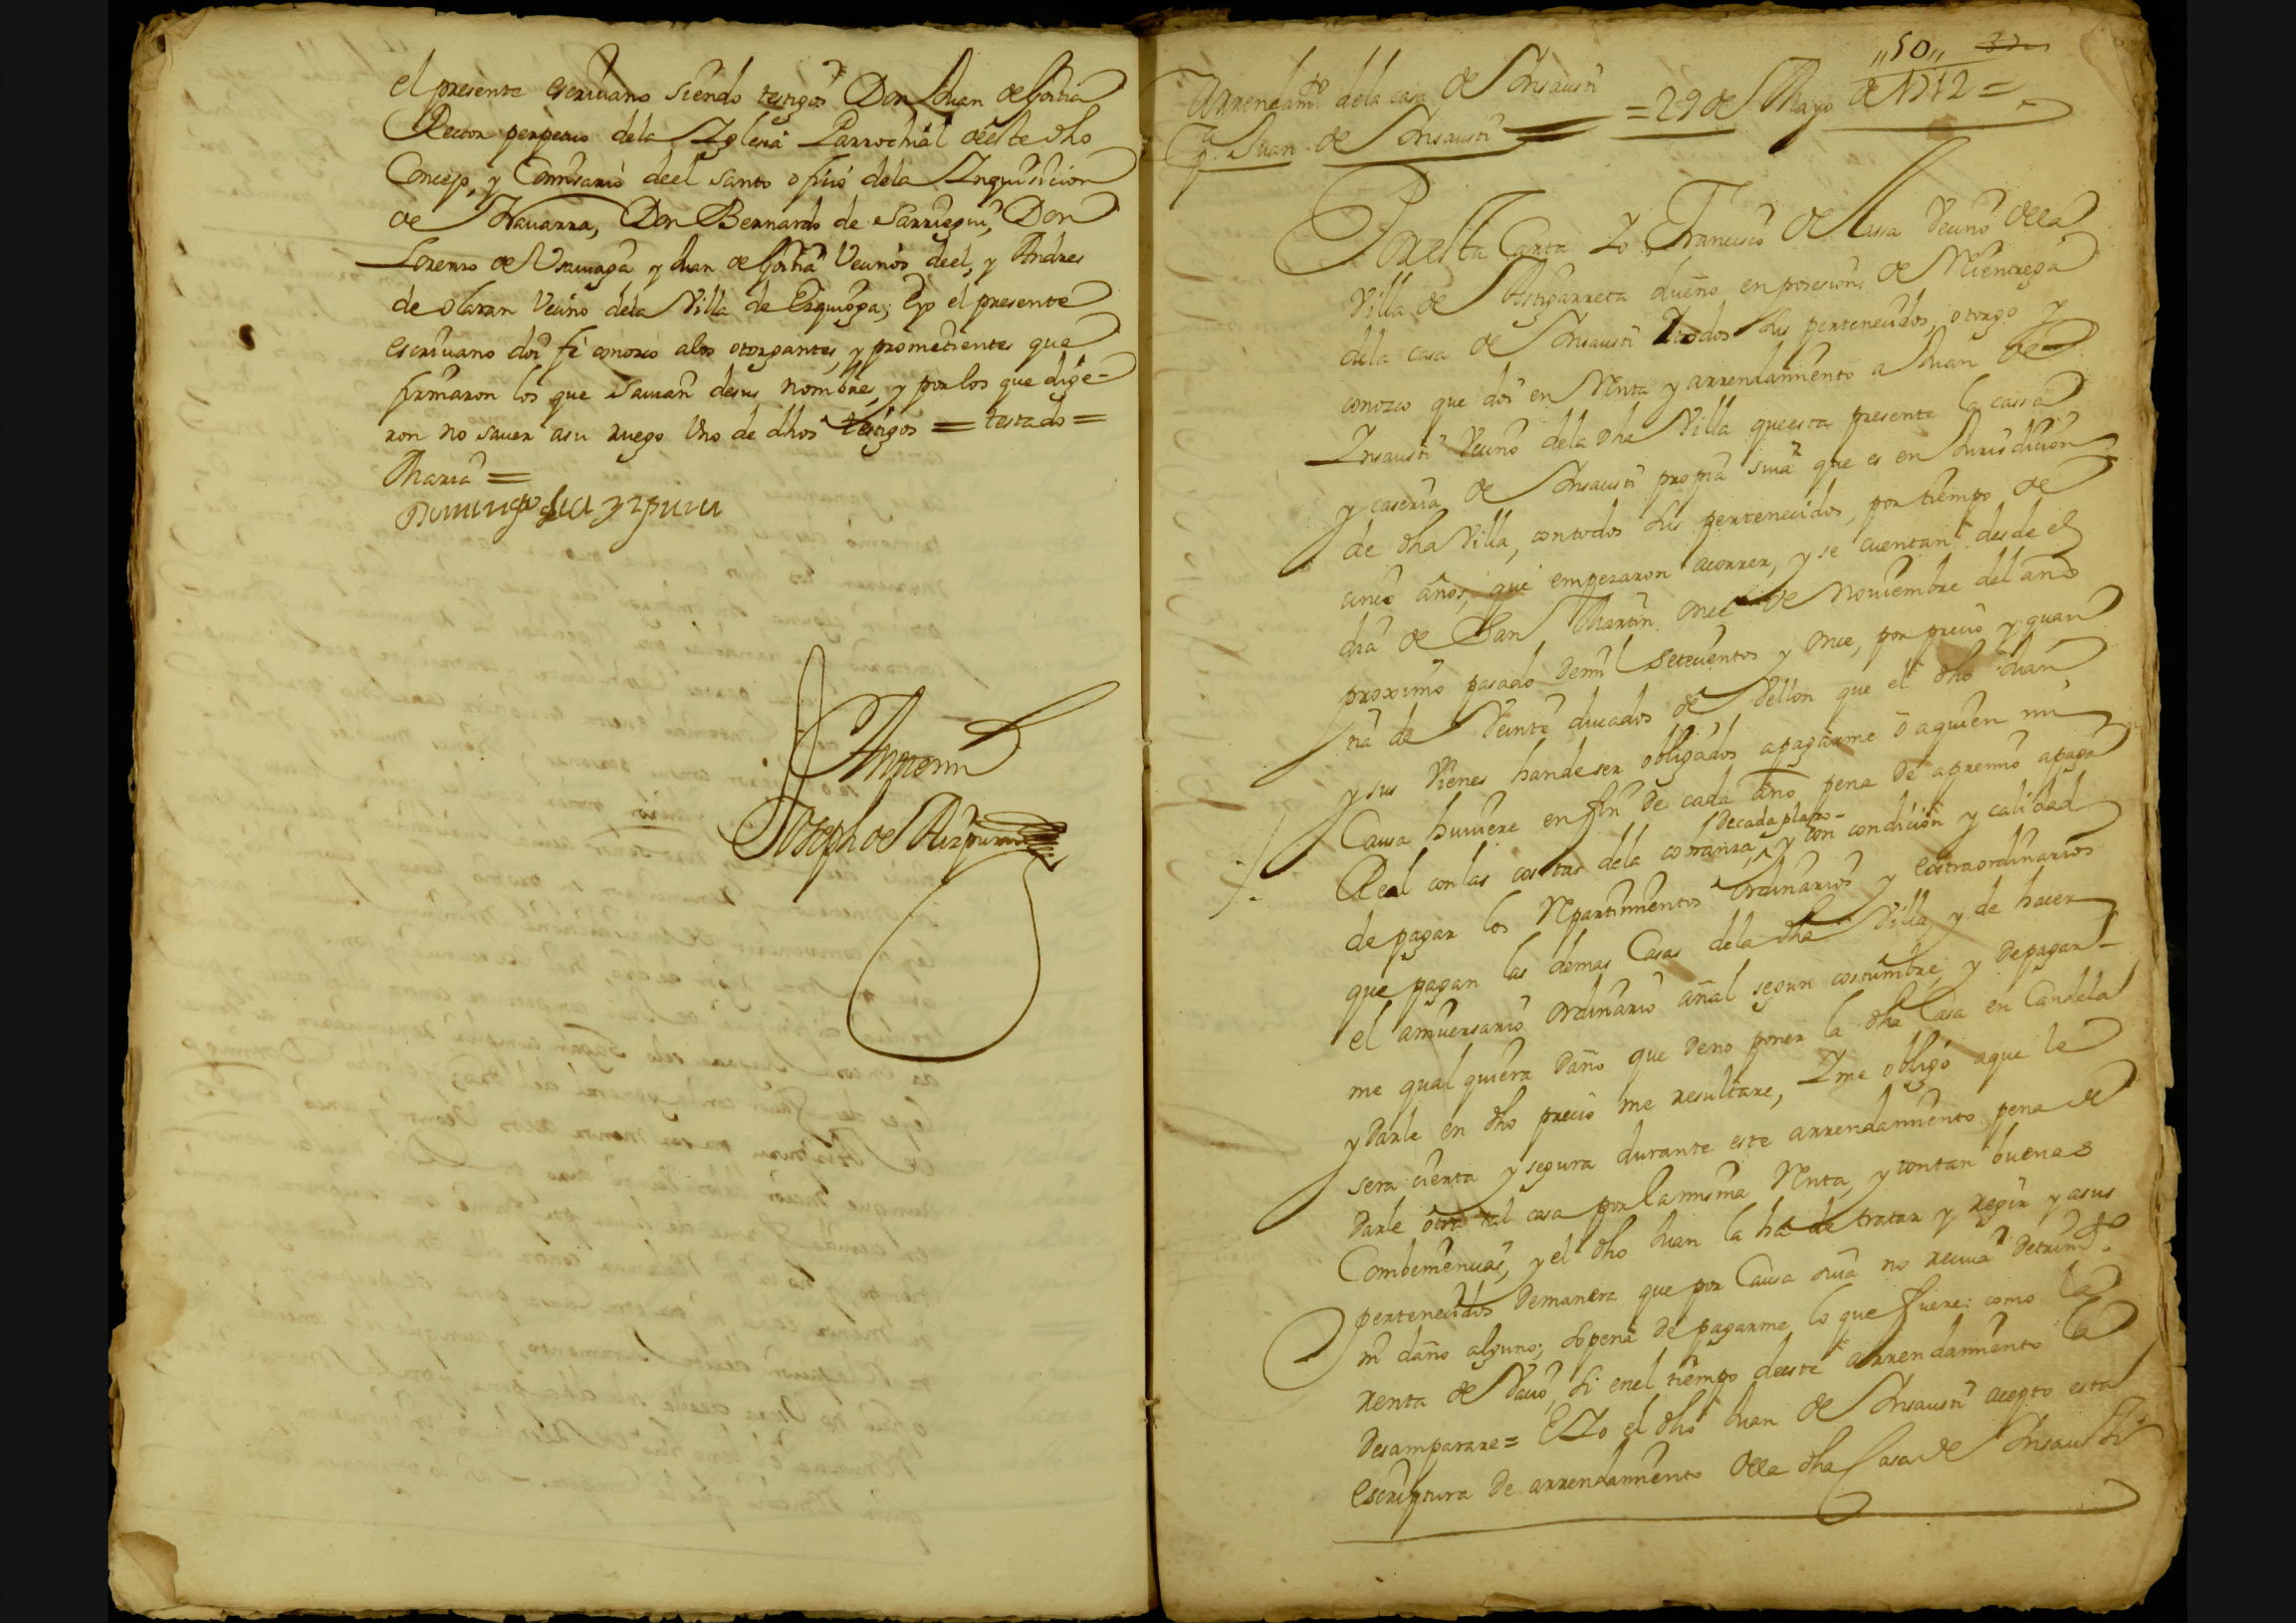 el presente escriuano siendo testigos Don Juan de Gorria
Rector perpetuo dela Iglesia Parrochial de este dho
Concejo, y Comisario deel Santo ofiçio dela Inquisicion
de Nauarra, Don Bernardo de Sarriegui, Don
Lorenzo de Vsurraga y Juan de Gorria Vecinos deel, y Andres
de olaran Vecino dela Villa de Ezquioga; Eyo el presente
escriuano doi fe conozco alos otorgantes, y prometientes que
firmaron los que Sauian desus nombres, y por los que dige-
ron no sauer asu ruego Vno de dhos testigos = testado =
Maria =
Domingo de Azpuru
Antemi
Joseph de Aizpuru
"50"
Arrendamto. dela casa de Insausti = 29 de Mayo de 1712 =
a Juan de Insausti
Por esta Carta Yo Francisco de Lasa Vecino della
Villa de Astigarreta dueño en posesion de Mientrega
dela casa de Insausti Ytodos sus pertenecidos, otorgo y
conozco que doi en Renta y arrendamiento a Juan de
Insausti Vecino dela dha Villa que esta presente la cassa
y caseria de Insausti propia suia que es en Jurisdicion
de dha Villa, contodos sus pertenecidos, por tiempo de
cinco años, que empezaron acorrer, y se cuentan desde el
dia de San Martin once de Nouiembre del año
proximo pasado demil Setecientos y once, por precio y quan
tia de Veinte ducados de Vellon que el dho Juan
y sus Vienes hande ser obligados apagarme o aquien mi
Causa huuiere en fin de cada año pena de apremio apaga
decada plazo-
Real conlas costas dela cobranza, y con condicion y calidad
de pagar los Repartimientos ordinarios y extraordinarios
que pagan las demas Casas dela dha Villa, y de hacer
el aniuersario ordinario añal segun costumbre, y depagar-
me qual quiera daño que deno poner la dha Casa en Candela
y darle en dho precio me resultare, Yme obligo aque le
sera cierta y segura durante este arrendamiento pena de
darle otra tal casa por la misma Renta, y contan buenas
Combeniencias, y el dho Juan la ha de tratar y regir y asus
pertenecidos demanera que por Causa suia no reciua detrimto.
ni daño alguno; sopena de pagarme lo que fuere: como la
renta de Vacio, si enel tiempo deeste arrendamiento la
desamparare = EYo el dho Juan de Insausti acepto esta
escriptura de arrendamiento dela dha Casa de Insausti